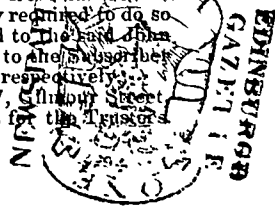 required to do so
to the said John
to the Subscriber
respectively.
Gilmour Street,
for the Trustors
EDINBURGH
GAZETTE